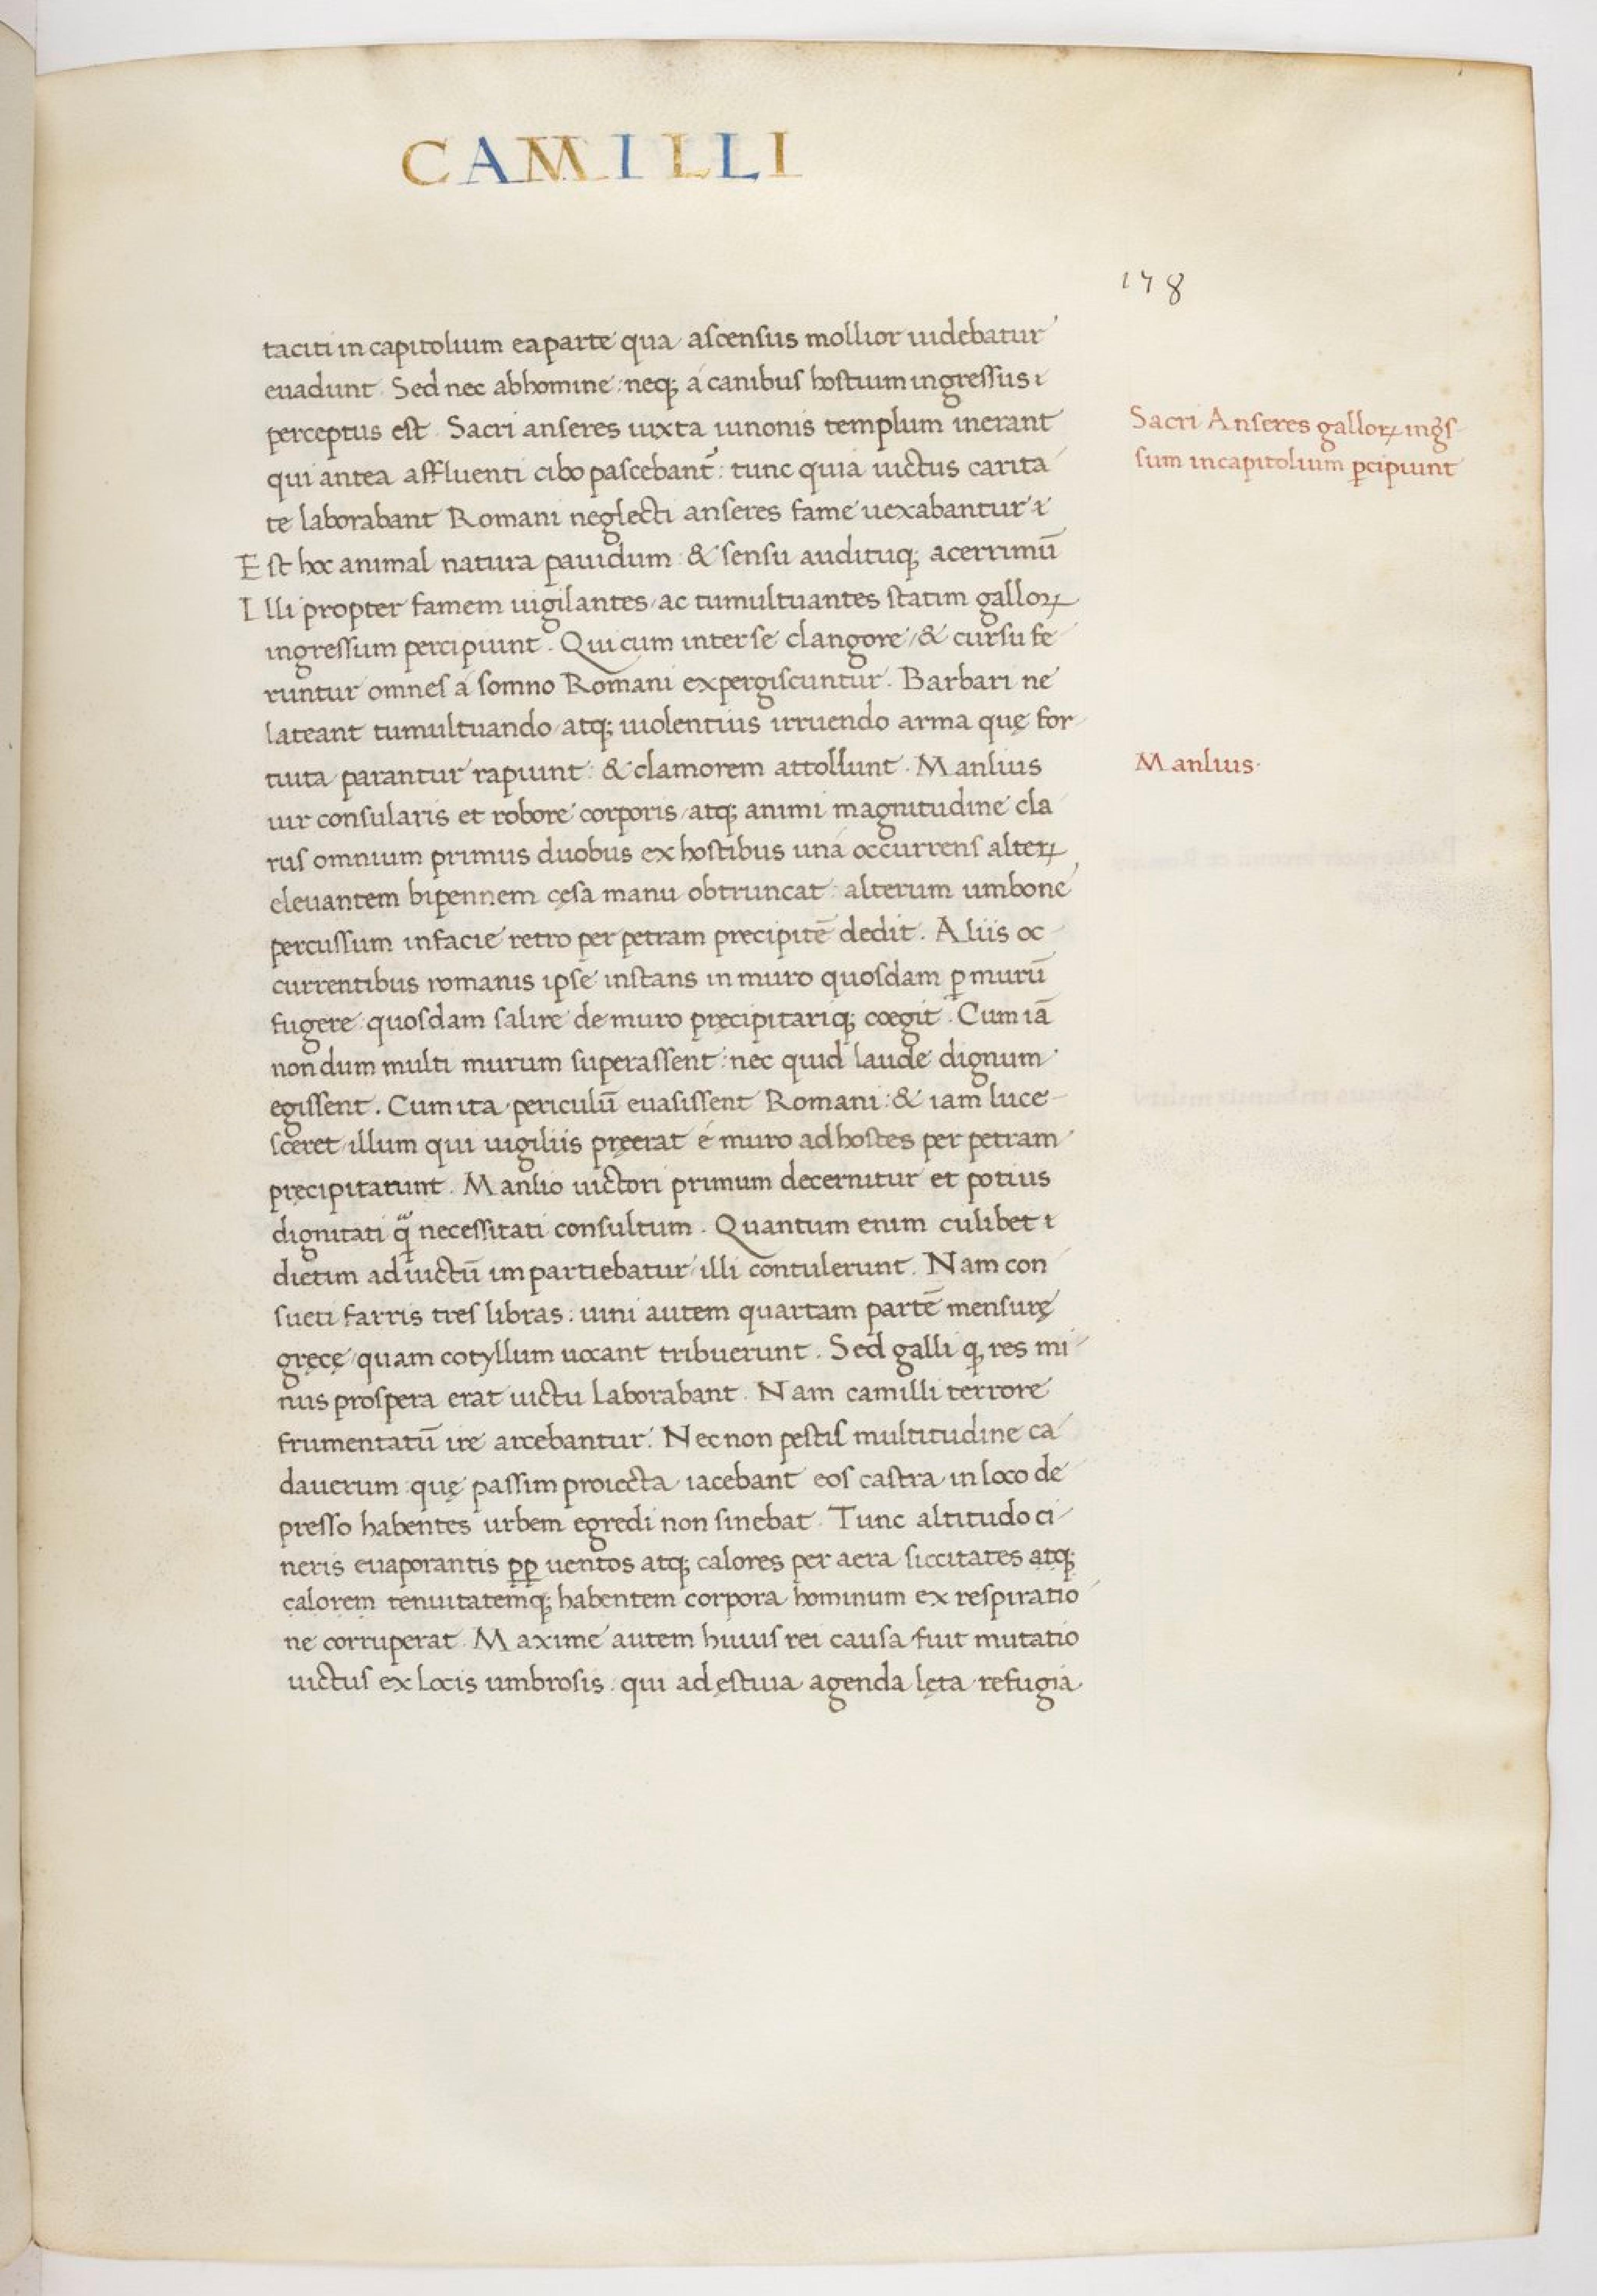 CAMILLI
178
taciti in capitolium ea parte qua ascensus mollior uidebatur
euadunt. Sed nec ab homine: neq; á canibus hostium ingressus
perceptus est. Sacri anseres iuxta iunonis templum inerant
qui antea affluenti cibo pascebant᷒: tunc quia uictus carita
te laborabant Romani neglecti anseres fame uexabantur
Est hoc animal natura pauidum & sensu audituq; acerrimū
Illi propter famem uigilantes ac tumultuantes statim galloꝝ
ingressum percipiunt. Qui cum inter se clangore & cursu fe
runtur omnes á somno Romani expergiscuntur. Barbari ne
lateant tumultuando atq; uiolentius irruendo arma quę for
tuita parantur rapiunt: & clamorem attollunt. Manlius
uir consularis et robore corporis atq; animi magnitudine cla
rus omnium primus duobus ex hostibus uná occurrens alteꝝ
eleuantem bipennem cęsa manu obtruncat: alterum umbone
percussum in facie retro per petram precipitē dedit. Aliis oc
currentibus romanis ipse instans in muro quosdam ꝑ murū
fugere: quosdam salire de muro pręcipitariq; coegit. Cum iā
nondum multi murum superassent: nec quid laude dignum
egissent. Cum ita periculū euasissent Romani: & iam luce
sceret illum qui uigiliis pręerat é muro ad hostes per petram
pręcipitarunt. Manlio uictori primum decernitur et potius
dignitati ꝙ̃ necessitati consultum. Quantum enim culibet
dietim ad uictū impartiebatur illi contulerunt. Nam con
sueti farris tres libras: uini autem quartam partē mensurę
gręcę quam cotyllum uocant tribuerunt. Sed galli q; res mi
nus prospera erat uictu laborabant. Nam camilli terrore
frumentatū ire arcebantur. Nec non pestis multitudine ca
dauerum quę passim proiecta iacebant eos castra in loco de
presso habentes urbem egredi non sinebat. Tunc altitudo ci
neris euaporantis ꝑꝑ uentos atq; calores per aera siccitates atq;
calorem tenuitatemq; habentem corpora hominum ex respiratio
ne corruperat. Maxime autem huius rei causa fuit mutatio
uictus ex locis umbrosis: qui ad ęstiua agenda lęta refugia
Sacri Anseres galloꝝ ingr̃s
sum in capitolium ꝑcipiunt
Manlius.